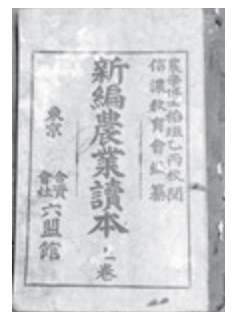 農學博士稻垣乙丙校閲
信濃教育會編纂
新編農業讀本 卷一
東京 合資會社 六盟館